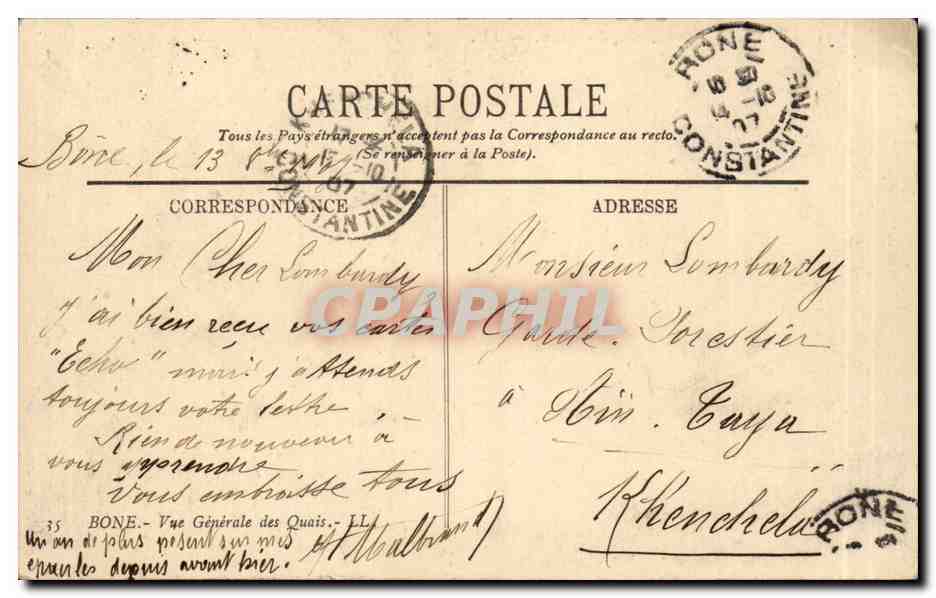 CARTE POSTALE
Tous les Pays étrangers n'acceptent pas la Correspondance au recto.
(Se renseigner à la Poste).
Bône, le 13
CORRESPONDANCE
Mon Cher Lombardy
J'ai bien recue vos cartes
"Echo" mais j'attends
toujours votre lettre
Rien de nouveau à
vous apprendre
Vous embrasse tous
35 BONE. - Vue Générale des Quais. - LL
Un an de plus pèsent sur mes
epaules depuis avant hier.
ADRESSE
Monsieur Lombardy
Garde. Forestier
à Aïn. Taya
Khenchela
BONE
CONSTANTINE
CONSTANTINE
BONE
CPAPHIL